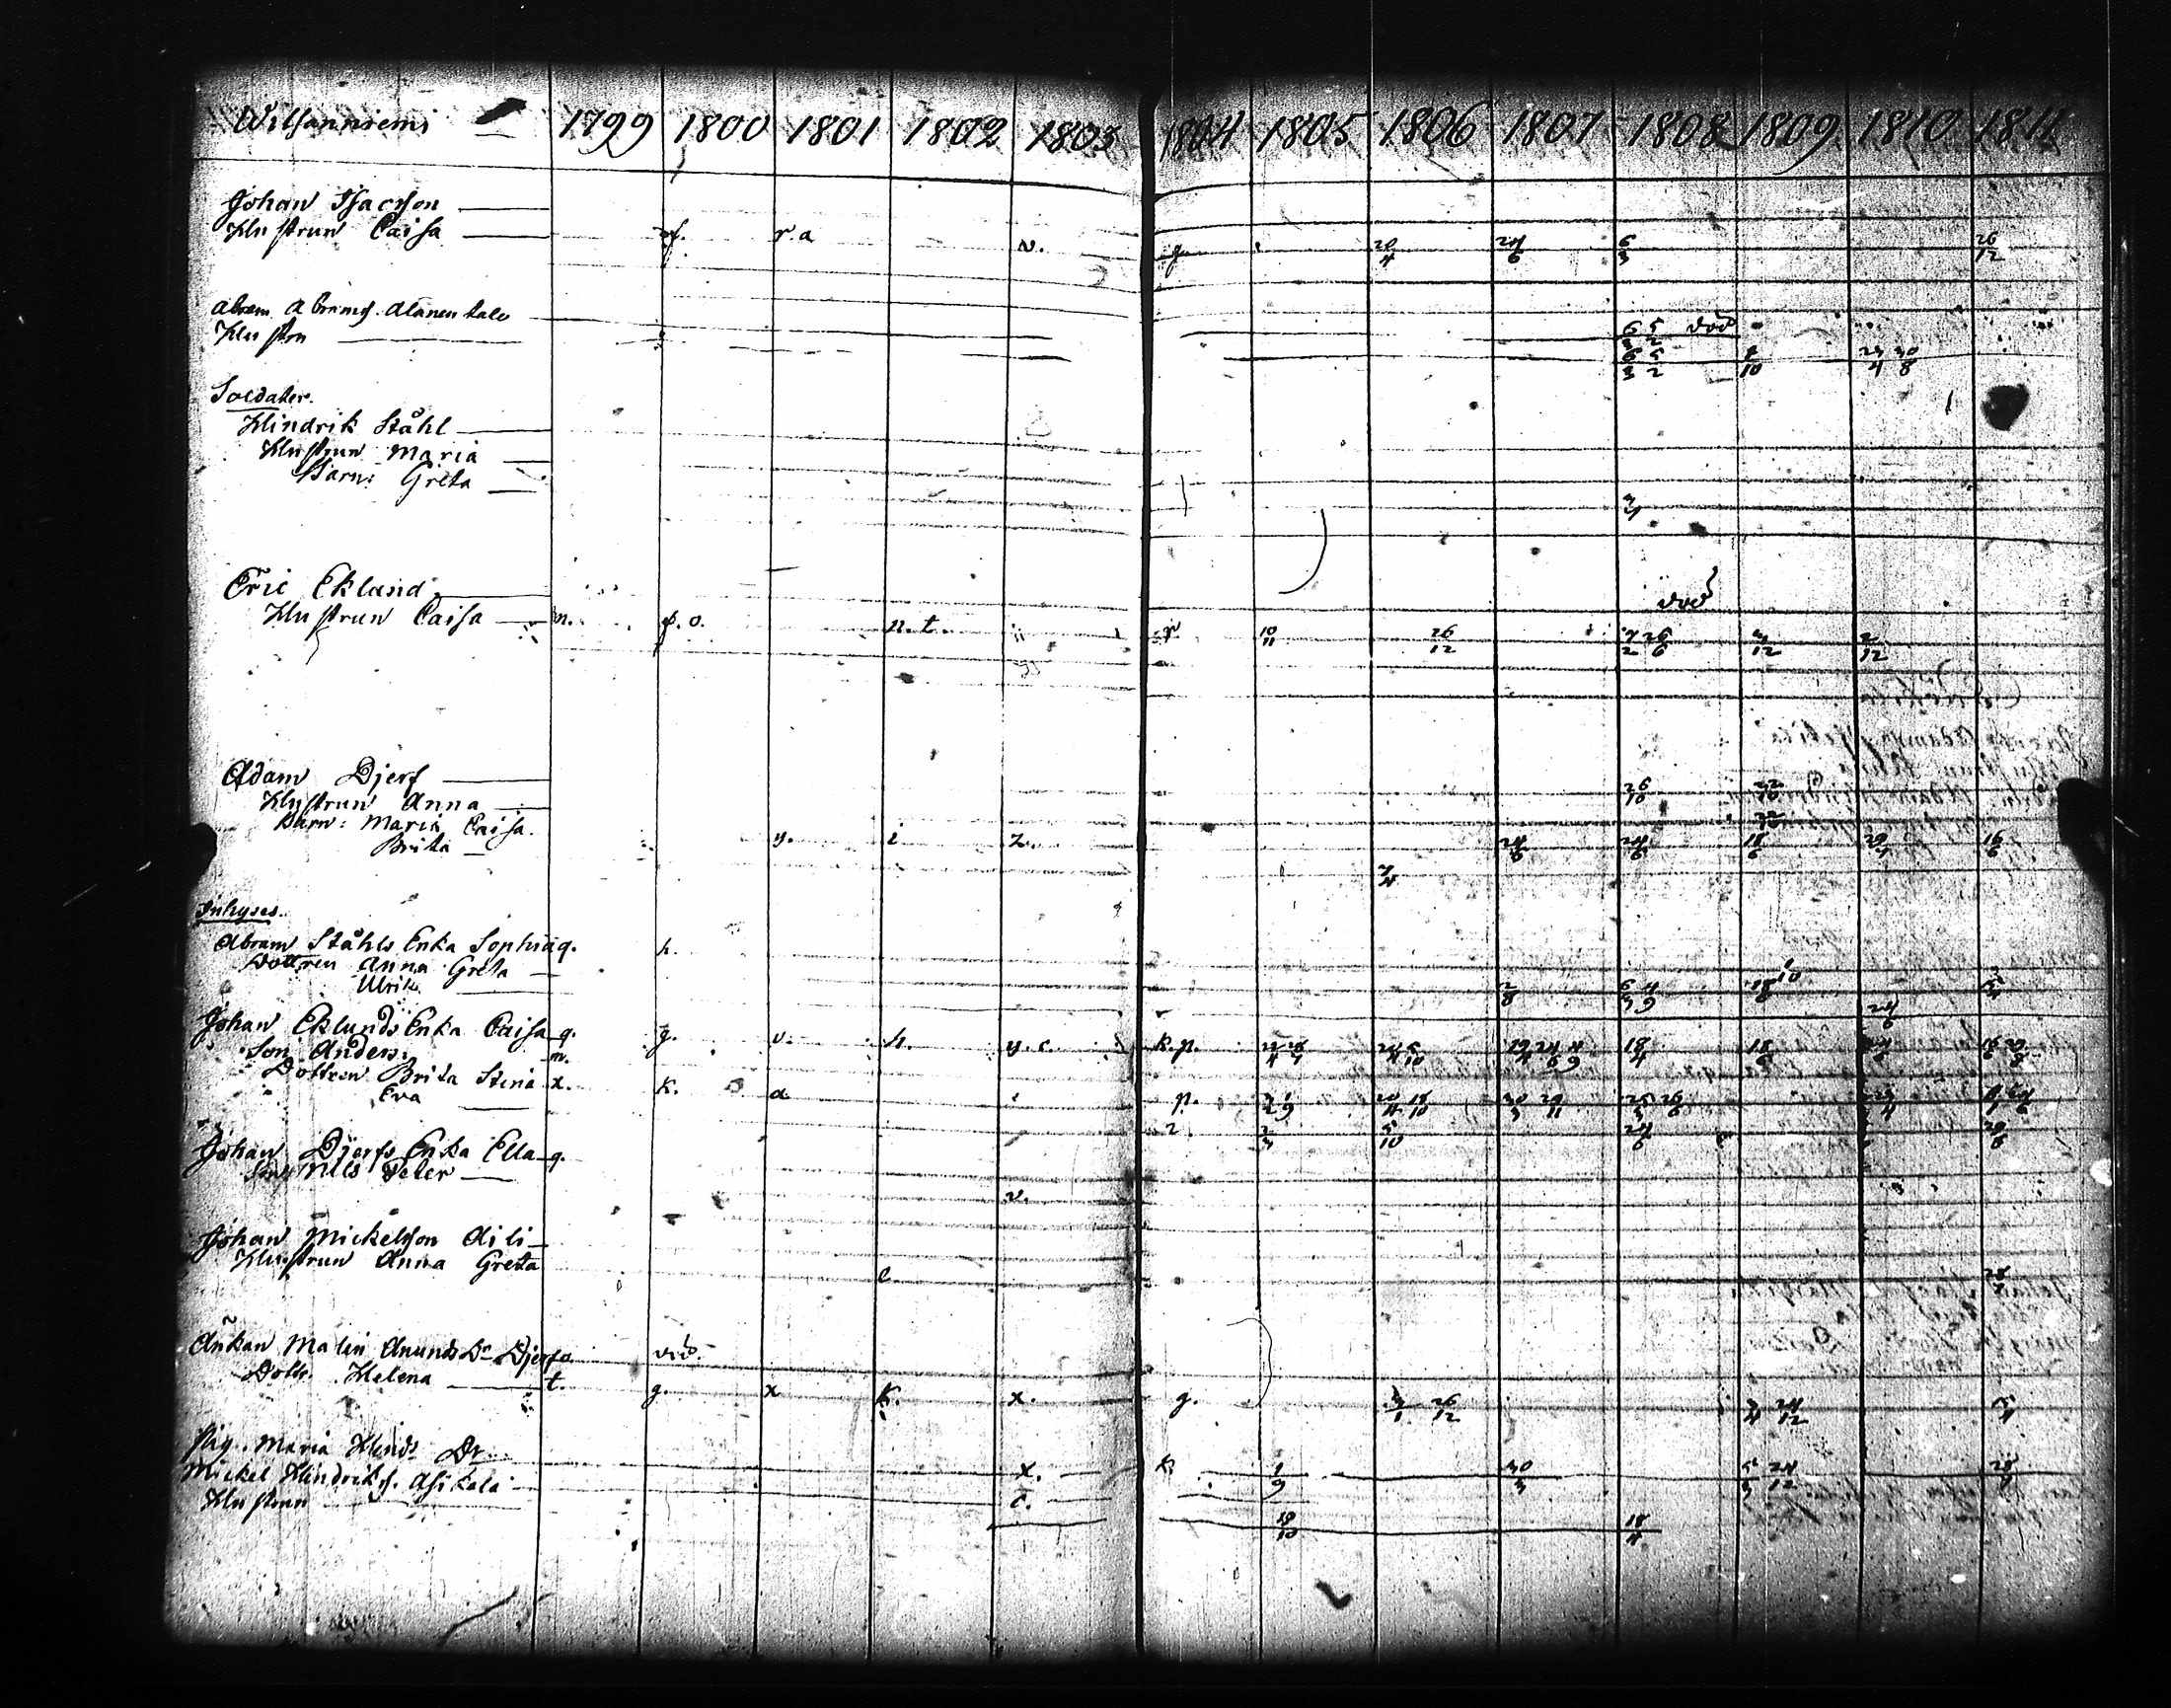 Wilsanniemi 1799 1800 1801 1802 1803 1804 1805 1806 1807 1808 1809 1810 1811
Johan Isacsson
Hustrun Caisa f. r.a v. g. 20/4 24/6 6/3 26/12
Abram Abramss. Alanentalo 6/3 5/2 död
Hustrn 6/3 5/2 1/10 23/4 30/8
Soldater.
Hindrik Ståhl
Hustrun Maria
Barn: Greta
Eric Eklund död
Hustrun Caisa n. f.o. n.t. r 10/11 26/12 7/2 26/6 12 2/12
Adam Djerf
Hustrun Anna 26/10 22/10
Barn: Maria Caisa.
Brita y. i z. 24/6 24/6 18/6 16/6
7/4
Inhyses.
Abram Ståhls Enka Sophia q. h.
Dottren Anna Greta
Ulrik 2/8 6/3 4/9
Johan Eklunds Enka Caisa q. g. v. h. y.c. k.p. 18/4 18/6
Son Anders m.
Dottren Brita Stina x. k. a i p. 20/4 18/10 30/3 29/11 25/3 26/6
Eva 2 2/3 5/10 24/6
Johan Djerfs Enka Ella q.
Son Nils Peter
v.
Johan Mickelsson Aili
Hustrun Anna Greta
e.
Änkan Malin Anunds Dr Djerf
Dottr. Helena t. g. x k. x. g. 3/1 26/12 24/12
Pig. Maria Hinds Dr
Mickel Hindrikss. Asikala x. k. 1/9 30/3 24/12 28/8
Hustrun c.
18/10 18/4